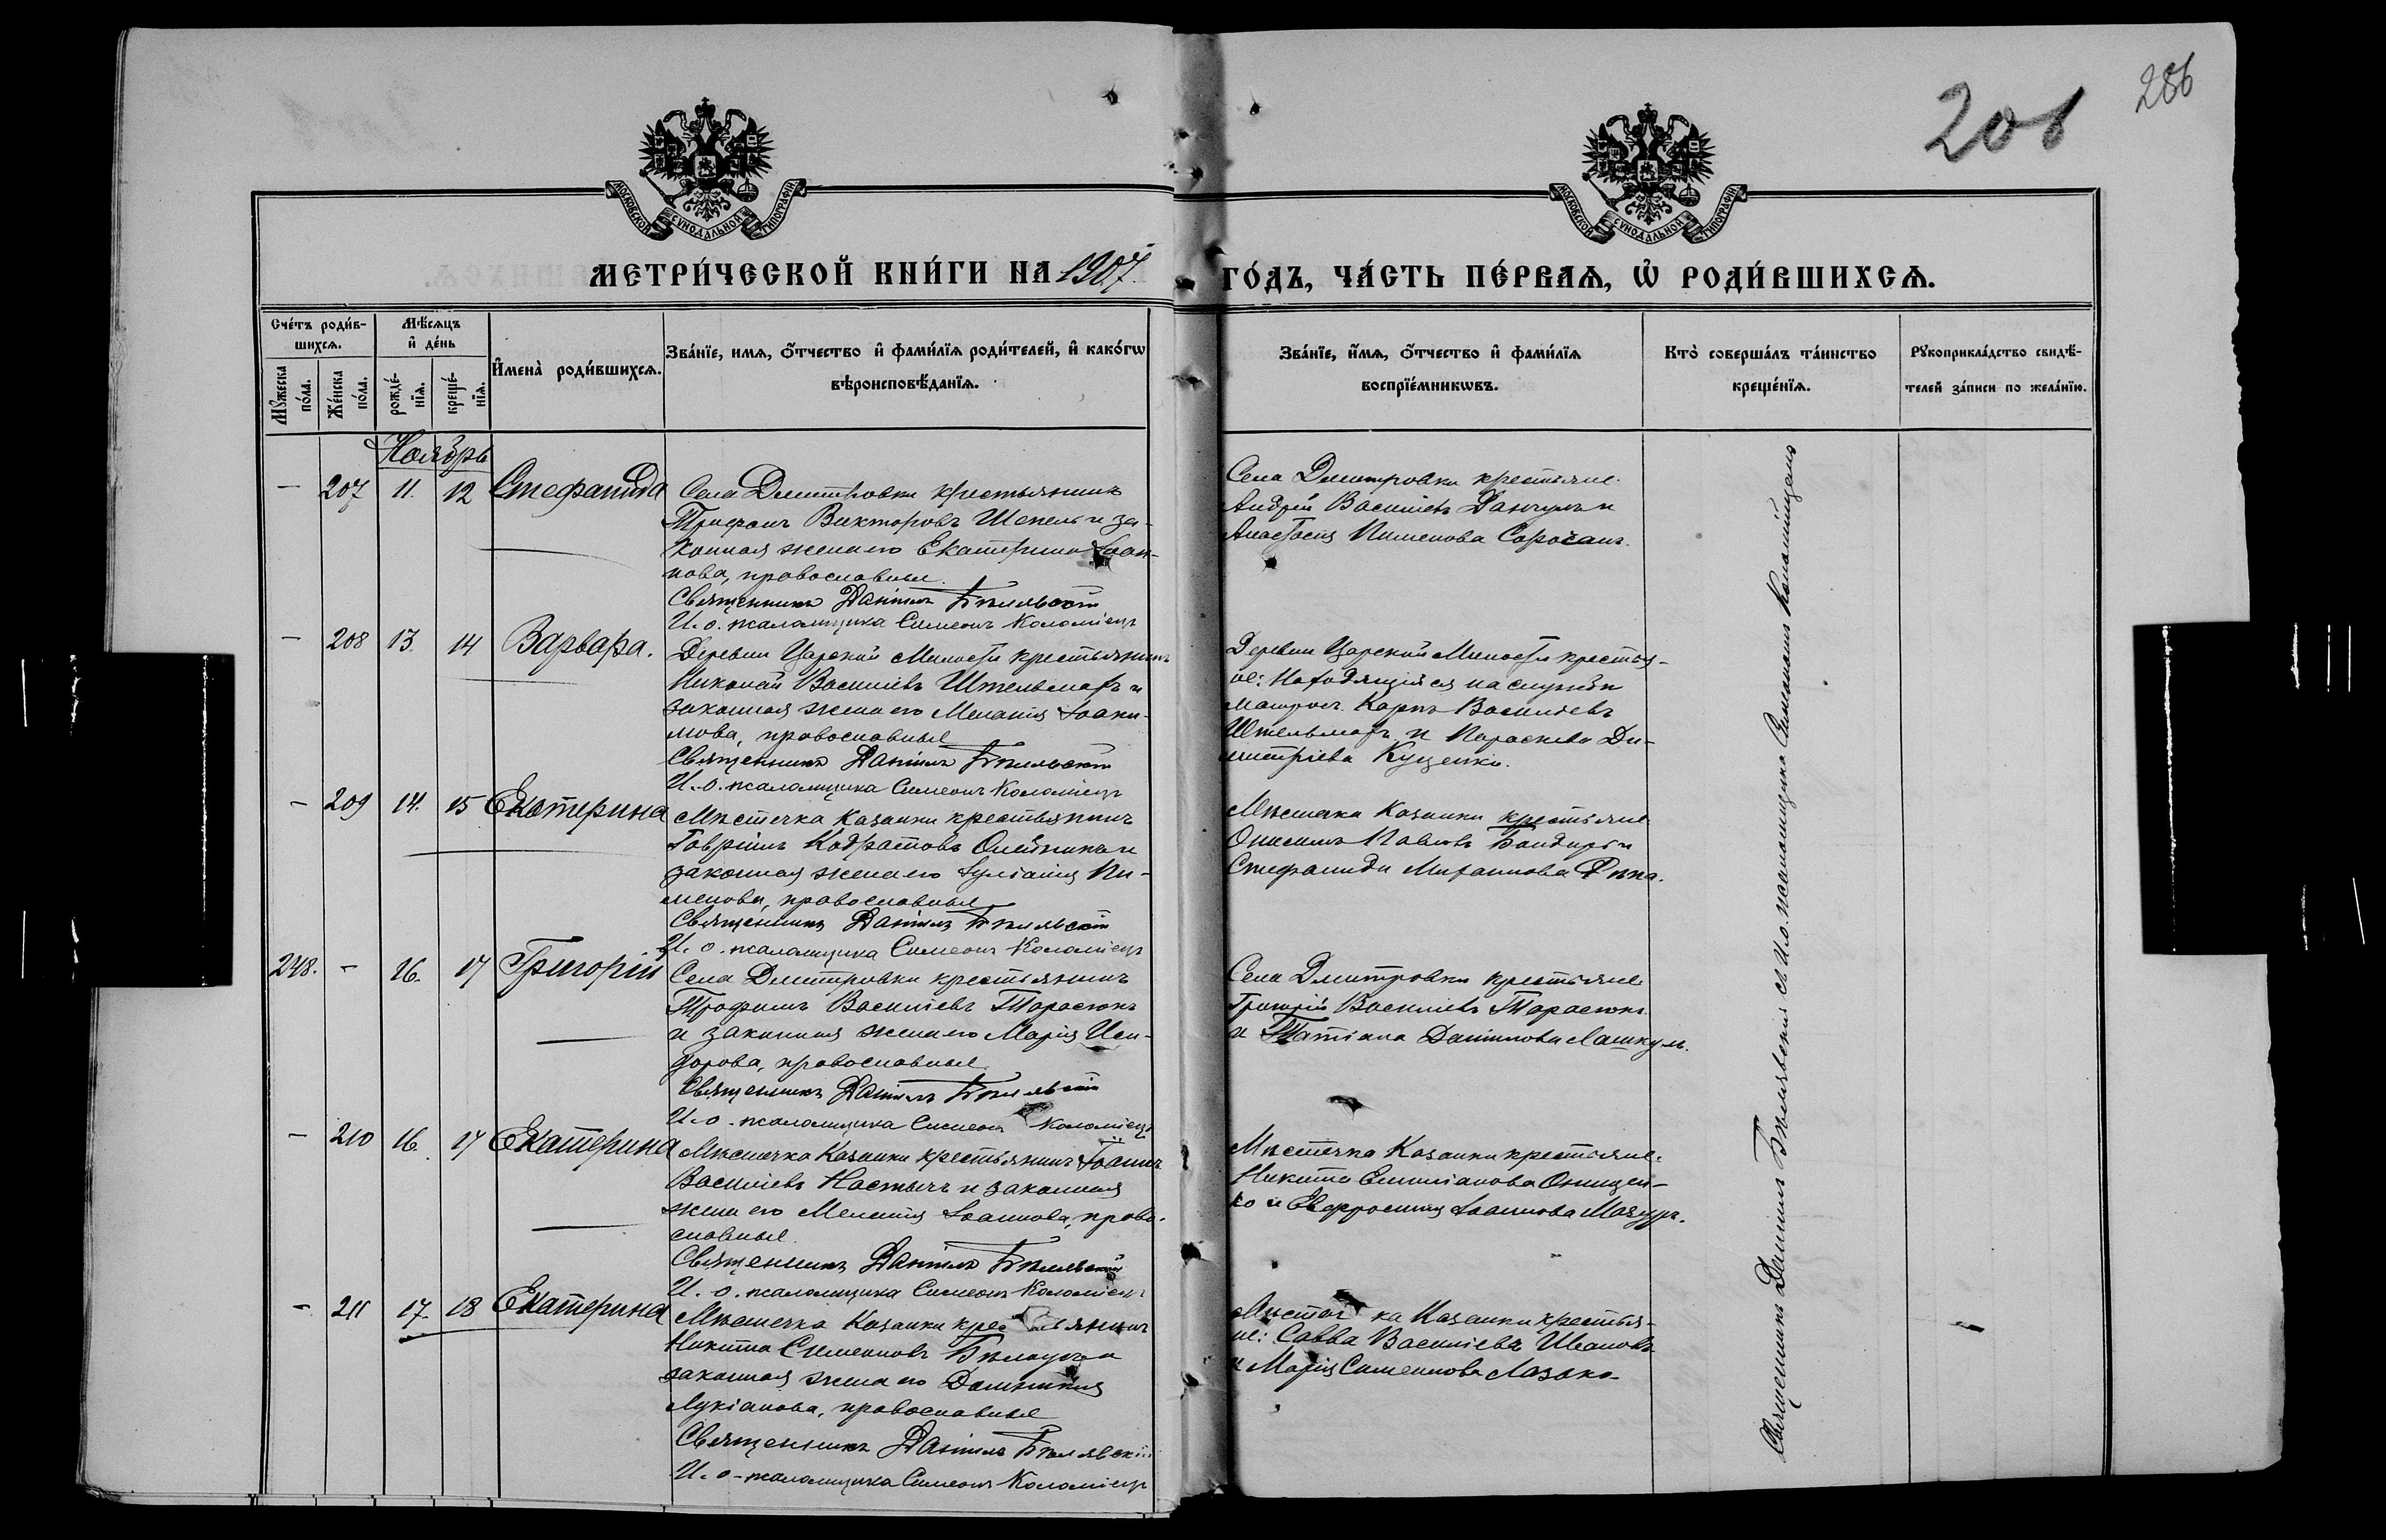 206
286
МОСКОВСКОЙ СѴНОДАЛЬНОЙ ТИПОГРАФІИ
МОСКОВСКОЙ СѴНОДАЛЬНОЙ ТИПОГРАФІИ
МЕТРИ́ЧЕСКОЙ КНИ́ГИ НА 1907 ГО́ДЪ, ЧА́СТЬ ПЕ́РВАѦ, Ѡ҆ РОДИ́ВШИХСѦ.
Сче́тъ роди́в-
шихсѧ.
Мꙋ́жеска по́ла.
Же́нска по́ла.
Мѣ́сѧцъ
и҆ де́нь
рожде́-
нїѧ.
креще́-
нїѧ.
И҆мена̀ роди́вшихсѧ.
Зва́нїе, имѧ, ѻ҆́тчество и҆ фами́лїѧ роди́телей, и҆ како́гѡ
вѣроисповѣ́данїѧ.
Зва́нїе, и҆́мѧ, ѻ҆́тчество и҆ фами́лїѧ
воспрїе́мникѡвъ.
Кто̀ соверша́лъ та́инство
креще́нїѧ.
Рꙋкоприкла́дство свидѣ́-
телей за́писи по жела́нїю.
Ноябрь
— 207 11. 12 Стефанида
Села Дмитровки крестьянинъ
Трифонъ Викторовъ Шепель и за-
конная жена его Екатерина Іоан-
нова, православные.
Священникъ Даніилъ Бѣлявскій
И. о. псаломщика Симеонъ Коломіецъ
Села Дмитровки крестьяне
Андрей Васильевъ и
Анастасія Пименова Сорочанъ.
— 208 13. 14 Варвара.
Деревни Царской Милости крестьянинъ
Николай Васильевъ Штельмахъ и
законная жена его Меланія Іоаки-
мова, православные
Священникъ Даніилъ Бѣлявскій
И. о. псаломщика Симеонъ Коломіецъ
Деревни Царской Милости крестья-
не: Находящійся на службѣ
матросъ Карпъ Васильевъ
Штельмахъ и Параскева Ди-
митріева Куценко.
— 209 14. 15 Екатерина
Мѣстечка Казанки крестьянинъ
Гавріилъ Кодратовъ Олейникъ и
законная жена его Іуліанія Пи-
менова, православные
Священникъ Даніилъ Бѣлявскій
И. о. псаломщика Симеонъ Коломіецъ
Мѣстечка Казанки крестьяне
Онисимъ Павловъ Бондарь и
Стефанида
248. — 16. 17 Григорій
Села Дмитровки крестьянинъ
Трофимъ Васильевъ Тарасюкъ
и законная жена его Марія Иси-
дорова, православные.
Священникъ Даніилъ Бѣлявскій
И. о. псаломщика Симеонъ Коломіецъ
Села Дмитровки крестьяне
Григорій Васильевъ Тарасюкъ
и Татіана Даніилова Лашкулъ.
— 210 16. 17 Екатерина
Мѣстечка Казанки крестьянинъ Іоаннъ
Васильевъ и законная
жена его Меланія Іоаннова, право-
славные.
Священникъ Даніилъ Бѣлявскій
И. о. псаломщика Симеонъ Коломіецъ
Мѣстечка Казанки крестьяне:
Никита Онищен-
ко и Евфросинія Іоаннова Мазуръ.
— 211 17. 18 Екатерина
Мѣстечка Казанки крестьянинъ
Никита Симеоновъ Бѣлоусъ и
законная жена его Домникія
Лукіанова, православные
Священникъ Даніилъ Бѣлявскій
И. о. псаломщика Симеонъ Коломіецъ
Мѣстечка Казанки крестья-
не: Савва Васильевъ Ивановъ
и Марія Симеонова
Священникъ Даніилъ Бѣлявскій съ и. о. псаломщика Симеономъ Коломійцемъ